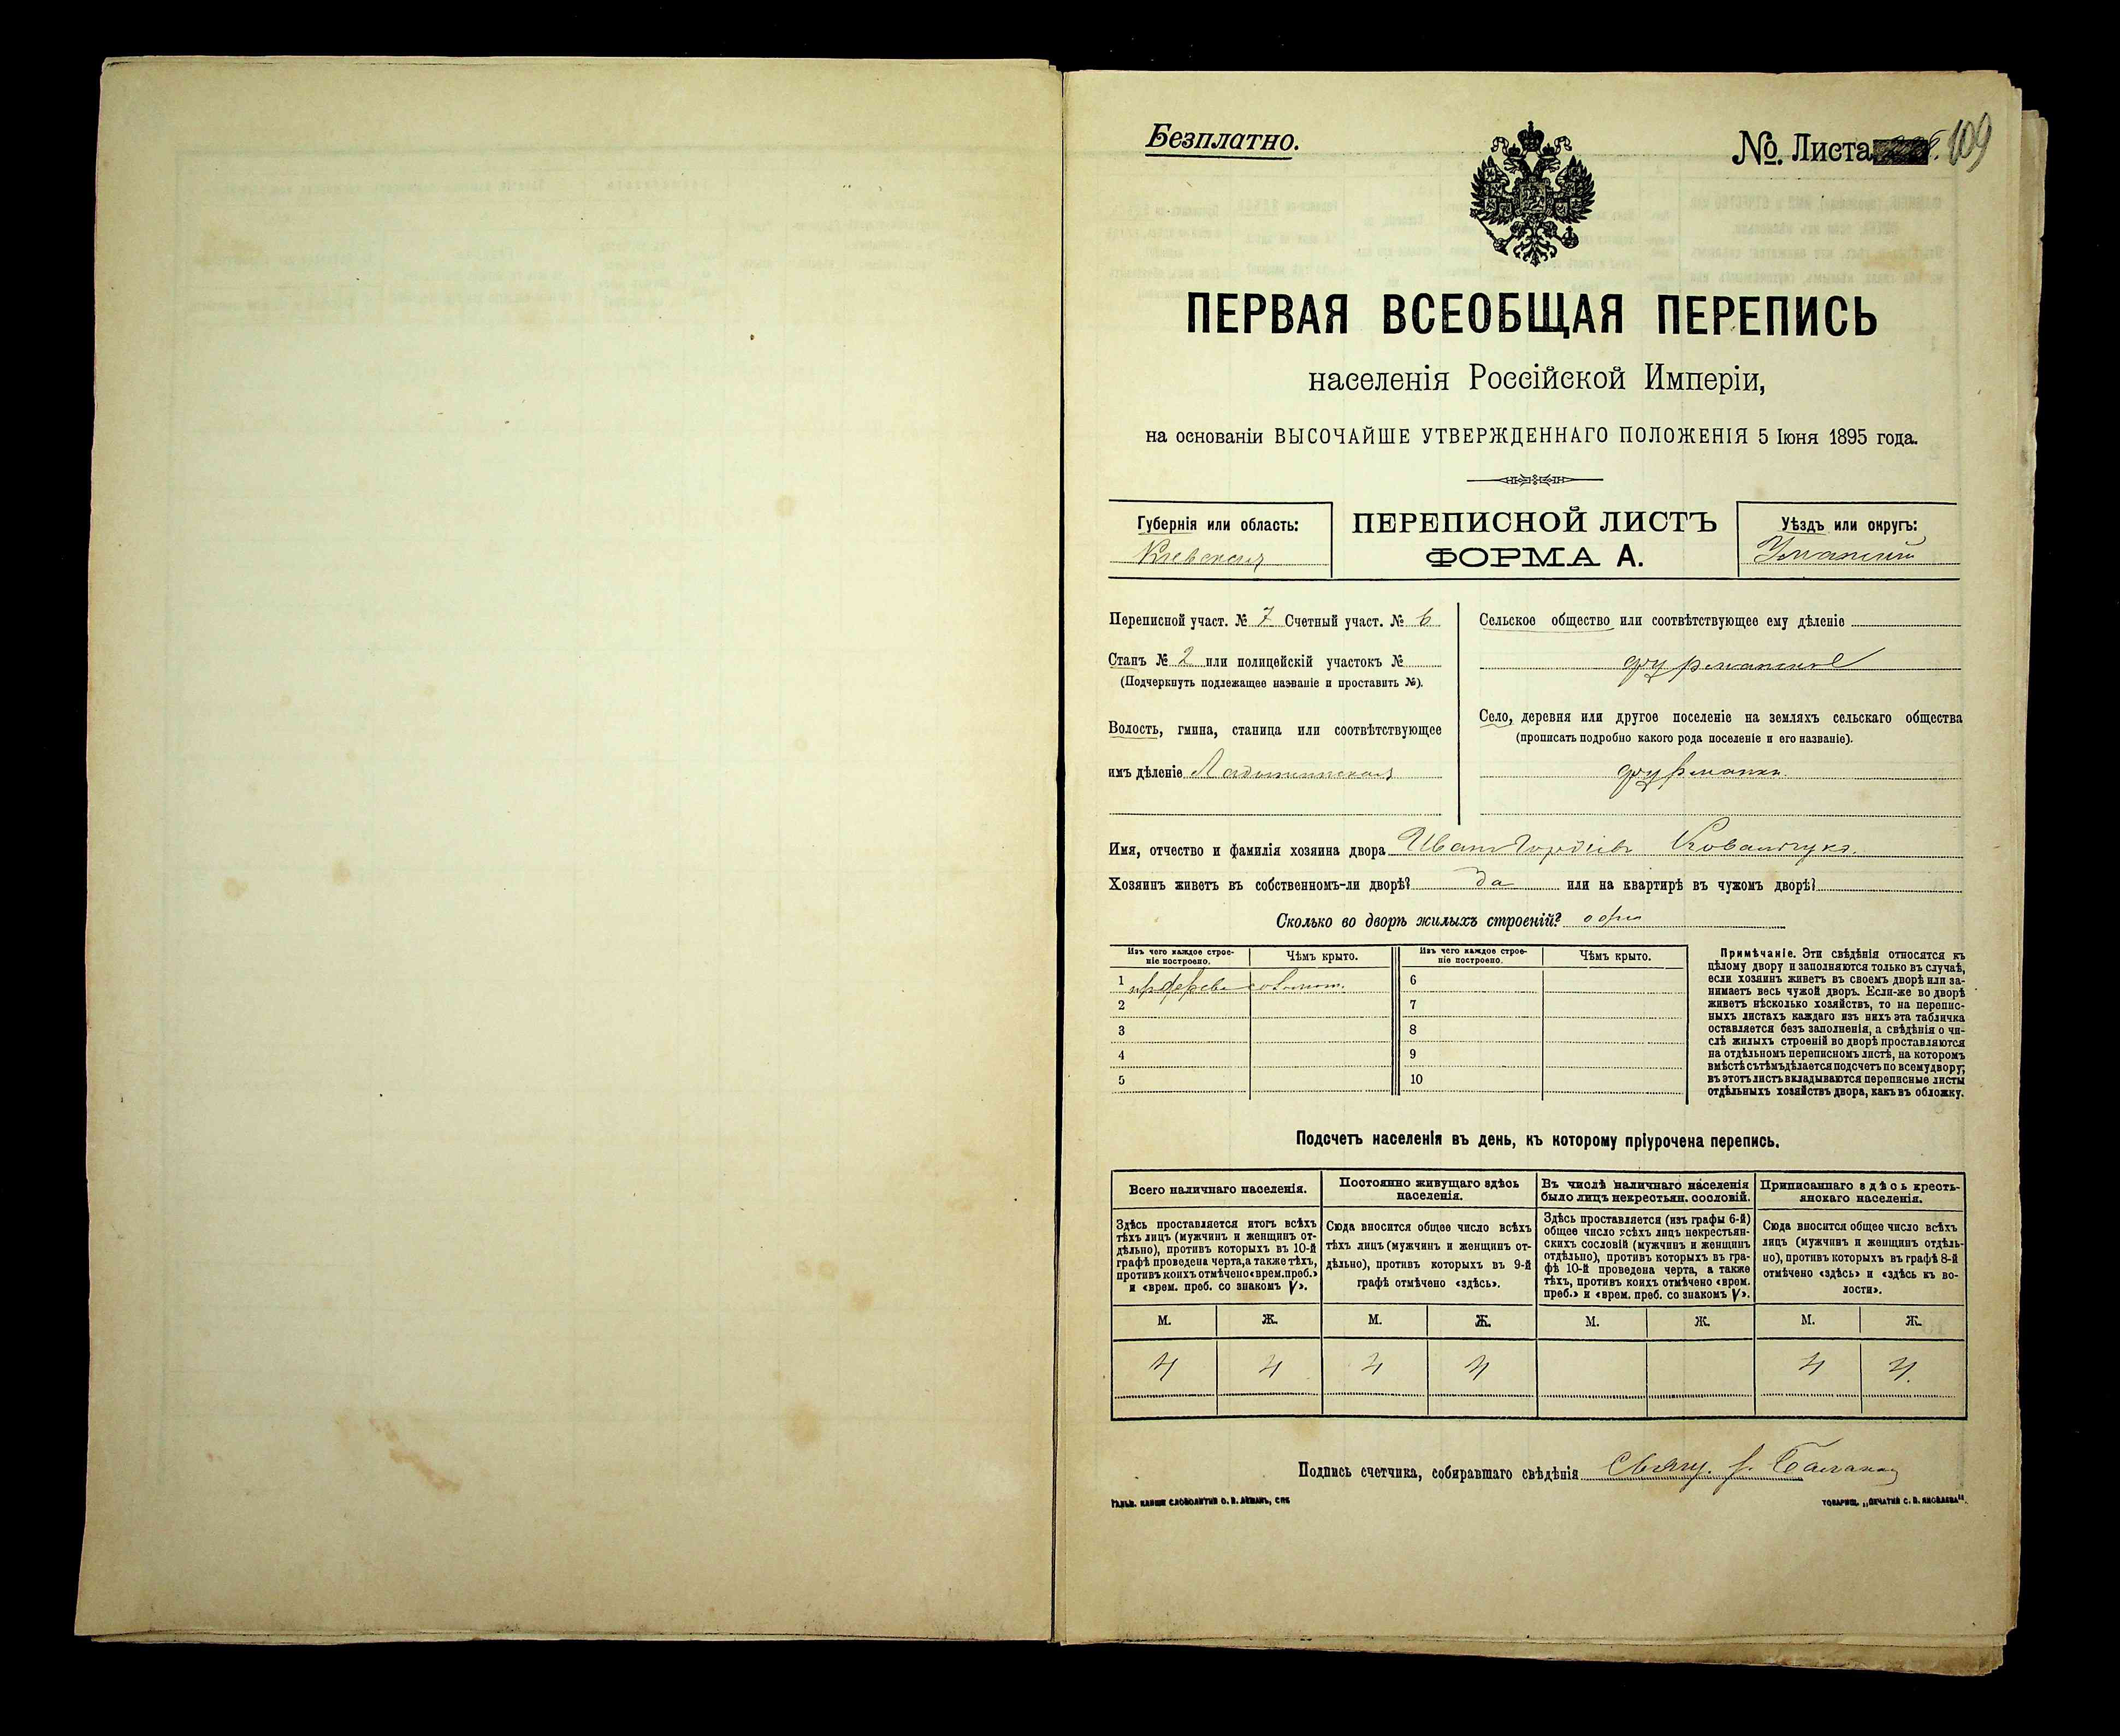 Безплатно.
№. Листа 109
ПЕРВАЯ ВСЕОБЩАЯ ПЕРЕПИСЬ
населенія Россійской Имперіи,
на основаніи ВЫСОЧАЙШЕ УТВЕРЖДЕННАГО ПОЛОЖЕНІЯ 5 Іюня 1895 года.
Губернія или область:
Кіевская
ПЕРЕПИСНОЙ ЛИСТЪ
ФОРМА А.
Уѣздъ или округъ:
Уманскій
Переписной участ. № 7 Счетный участ. № 6
Станъ № 2 или полицейскій участокъ №
(Подчеркнуть подлежащее названіе и проставить №).
Волость, гмина, станица или соотвѣтствующее
имъ дѣленіе Ладыжинская
Сельское общество или соотвѣтствующее ему дѣленіе
фурманское
Село, деревня или другое поселеніе на земляхъ сельскаго общества
(прописать подробно какого рода поселеніе и его названіе).
фурманка
Имя, отчество и фамилія хозяина двора Иванъ Гордіевъ Ковальчукъ.
Хозяинъ живетъ въ собственномъ-ли дворѣ? да или на квартирѣ въ чужомъ дворѣ?
Сколько во дворѣ жилыхъ строеній? одно
Изъ чего каждое строе-
ніе построено.
Чѣмъ крыто.
Изъ чего каждое строе-
ніе построено.
Чѣмъ крыто.
1 дерева соломой.
2
3
4
5
6
7
8
9
10
Примѣчаніе. Эти свѣдѣнія относятся къ
цѣлому двору и заполняются только въ случаѣ,
если хозяинъ живетъ въ своемъ дворѣ или за-
нимаетъ весь чужой дворъ. Если-же во дворѣ
живетъ нѣсколько хозяйствъ, то на перепис-
ныхъ листахъ каждаго изъ нихъ эта табличка
оставляется безъ заполненія, а свѣдѣнія о чи-
слѣ жилыхъ строеній во дворѣ проставляются
на отдѣльномъ переписномъ листѣ, на которомъ
вмѣстѣ съ тѣмъ дѣлается подсчетъ по всему двору;
въ этотъ листъ вкладываются переписные листы
отдѣльныхъ хозяйствъ двора, какъ въ обложку.
Подсчетъ населенія въ день, къ которому пріурочена перепись.
Всего наличнаго населенія.
Здѣсь проставляется итогъ всѣхъ
тѣхъ лицъ (мужчинъ и женщинъ от-
дѣльно), противъ которыхъ въ 10-й
графѣ проведена черта, а также тѣхъ,
противъ коихъ отмѣчено «врем. преб.»
и «врем. преб. со знакомъ V».
Постоянно живущаго здѣсь
населенія.
Сюда вносится общее число всѣхъ
тѣхъ лицъ (мужчинъ и женщинъ от-
дѣльно), противъ которыхъ въ 9-й
графѣ отмѣчено «здѣсь».
Въ числѣ наличнаго населенія
было лицъ некрестьян. сословій.
Здѣсь проставляется (изъ графы 6-й)
общее число всѣхъ лицъ некрестьян-
скихъ сословій (мужчинъ и женщинъ
отдѣльно), противъ которыхъ въ гра-
фѣ 10-й проведена черта, а также
тѣхъ, противъ коихъ отмѣчено «врем.
преб.» и «врем. преб. со знакомъ V».
Приписаннаго здѣсь кресть-
янскаго населенія.
Сюда вносится общее число всѣхъ
лицъ (мужчинъ и женщинъ отдѣль-
но), противъ которыхъ въ графѣ 8-й
отмѣчено «здѣсь» и «здѣсь къ во-
лости».
М. Ж. М. Ж. М. Ж. М. Ж.
4 4 4 4 4 4
Подпись счетчика, собиравшаго свѣдѣнія Свящ.
ТОВАРИЩ. „ПЕЧАТНЯ С. П. ЯКОВЛЕВА“.